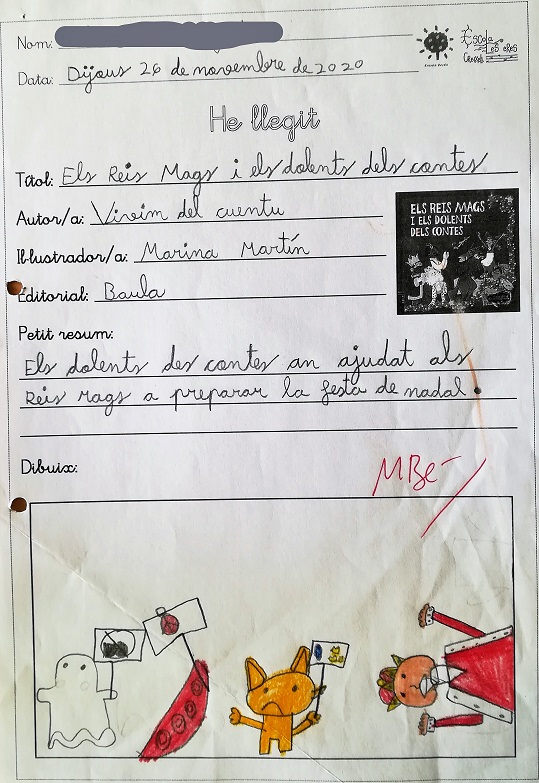 Nom:
Escola
Les eres
Creixell
Data: Dijous 26 de novembre de 2020
He llegit
Títol: Els Reis Mags i els dolents dels contes
Autor/a: Vivim del cuentu
ELS REIS MAGS
I ELS DOLENTS
DELS CONTES
Il·lustrador/a: Marina Martín
Editorial: Baula
Petit resum:
Els dolents des contes an ajudat als
Reis mags a preparar la festa de nadal.
Dibuix:
MBe-